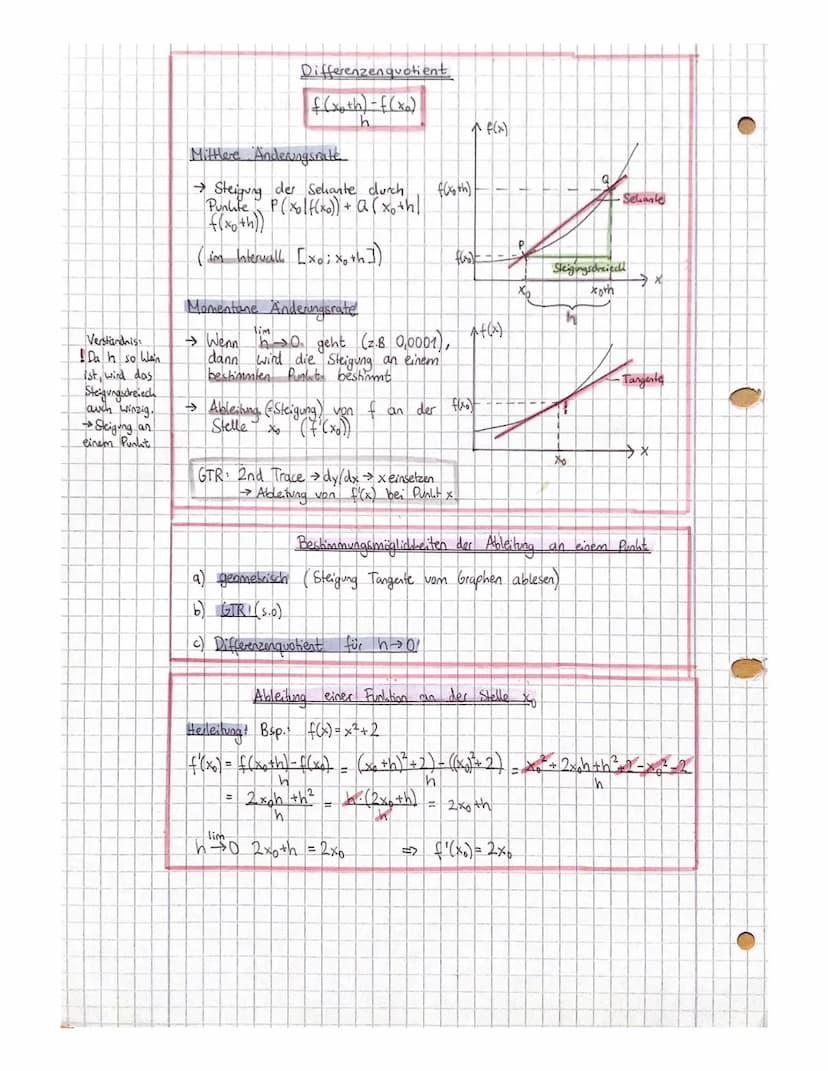 Differenzenquotient
f(x₀+h)-f(x₀)
h
Mittlere Änderungsrate
→ Steigung der Sekante durch
Punkte P(x₀|f(x₀)) + Q(x₀+h|
f(x₀+h))
(im Intervall [x₀; x₀+h])
f(x)
f(x₀+h)
f(x₀)
Q
P
Sekante
Steigungsdreieck
x
x₀
x₀+h
h
Momentane Änderungsrate
→ Wenn lim h→0 geht (z.B 0,0001),
dann wird die Steigung an einem
bestimmten Punkt bestimmt
→ Ableitung (=Steigung) von f an der
Stelle x₀ (f'(x₀))
Verständnis:
! Da h so klein
ist, wird das
Steigungsdreieck
auch winzig.
→ Steigung an
einem Punkt
f(x)
f(x₀)
Tangente
x
x₀
GTR: 2nd Trace → dy/dx → x einsetzen
→ Ableitung von f'(x) bei Punkt x.
Bestimmungsmöglichkeiten der Ableitung an einem Punkt
a) geometrisch (Steigung Tangente vom Graphen ablesen)
b) GTR! (s.o)
c) Differenzenquotient für h→0!
Ableitung einer Funktion an der Stelle x₀
Herleitung! Bsp.: f(x)=x²+2
f'(x₀) = f(x₀+h)-f(x₀) / h = (x₀+h)²+2)-((x₀)²+2) / h = x₀²+2x₀h+h²+2-x₀²-2 / h
= 2x₀h+h² / h = h·(2x₀+h) / h = 2x₀+h
lim h→0 2x₀+h = 2x₀ ⇒ f'(x₀)=2x₀